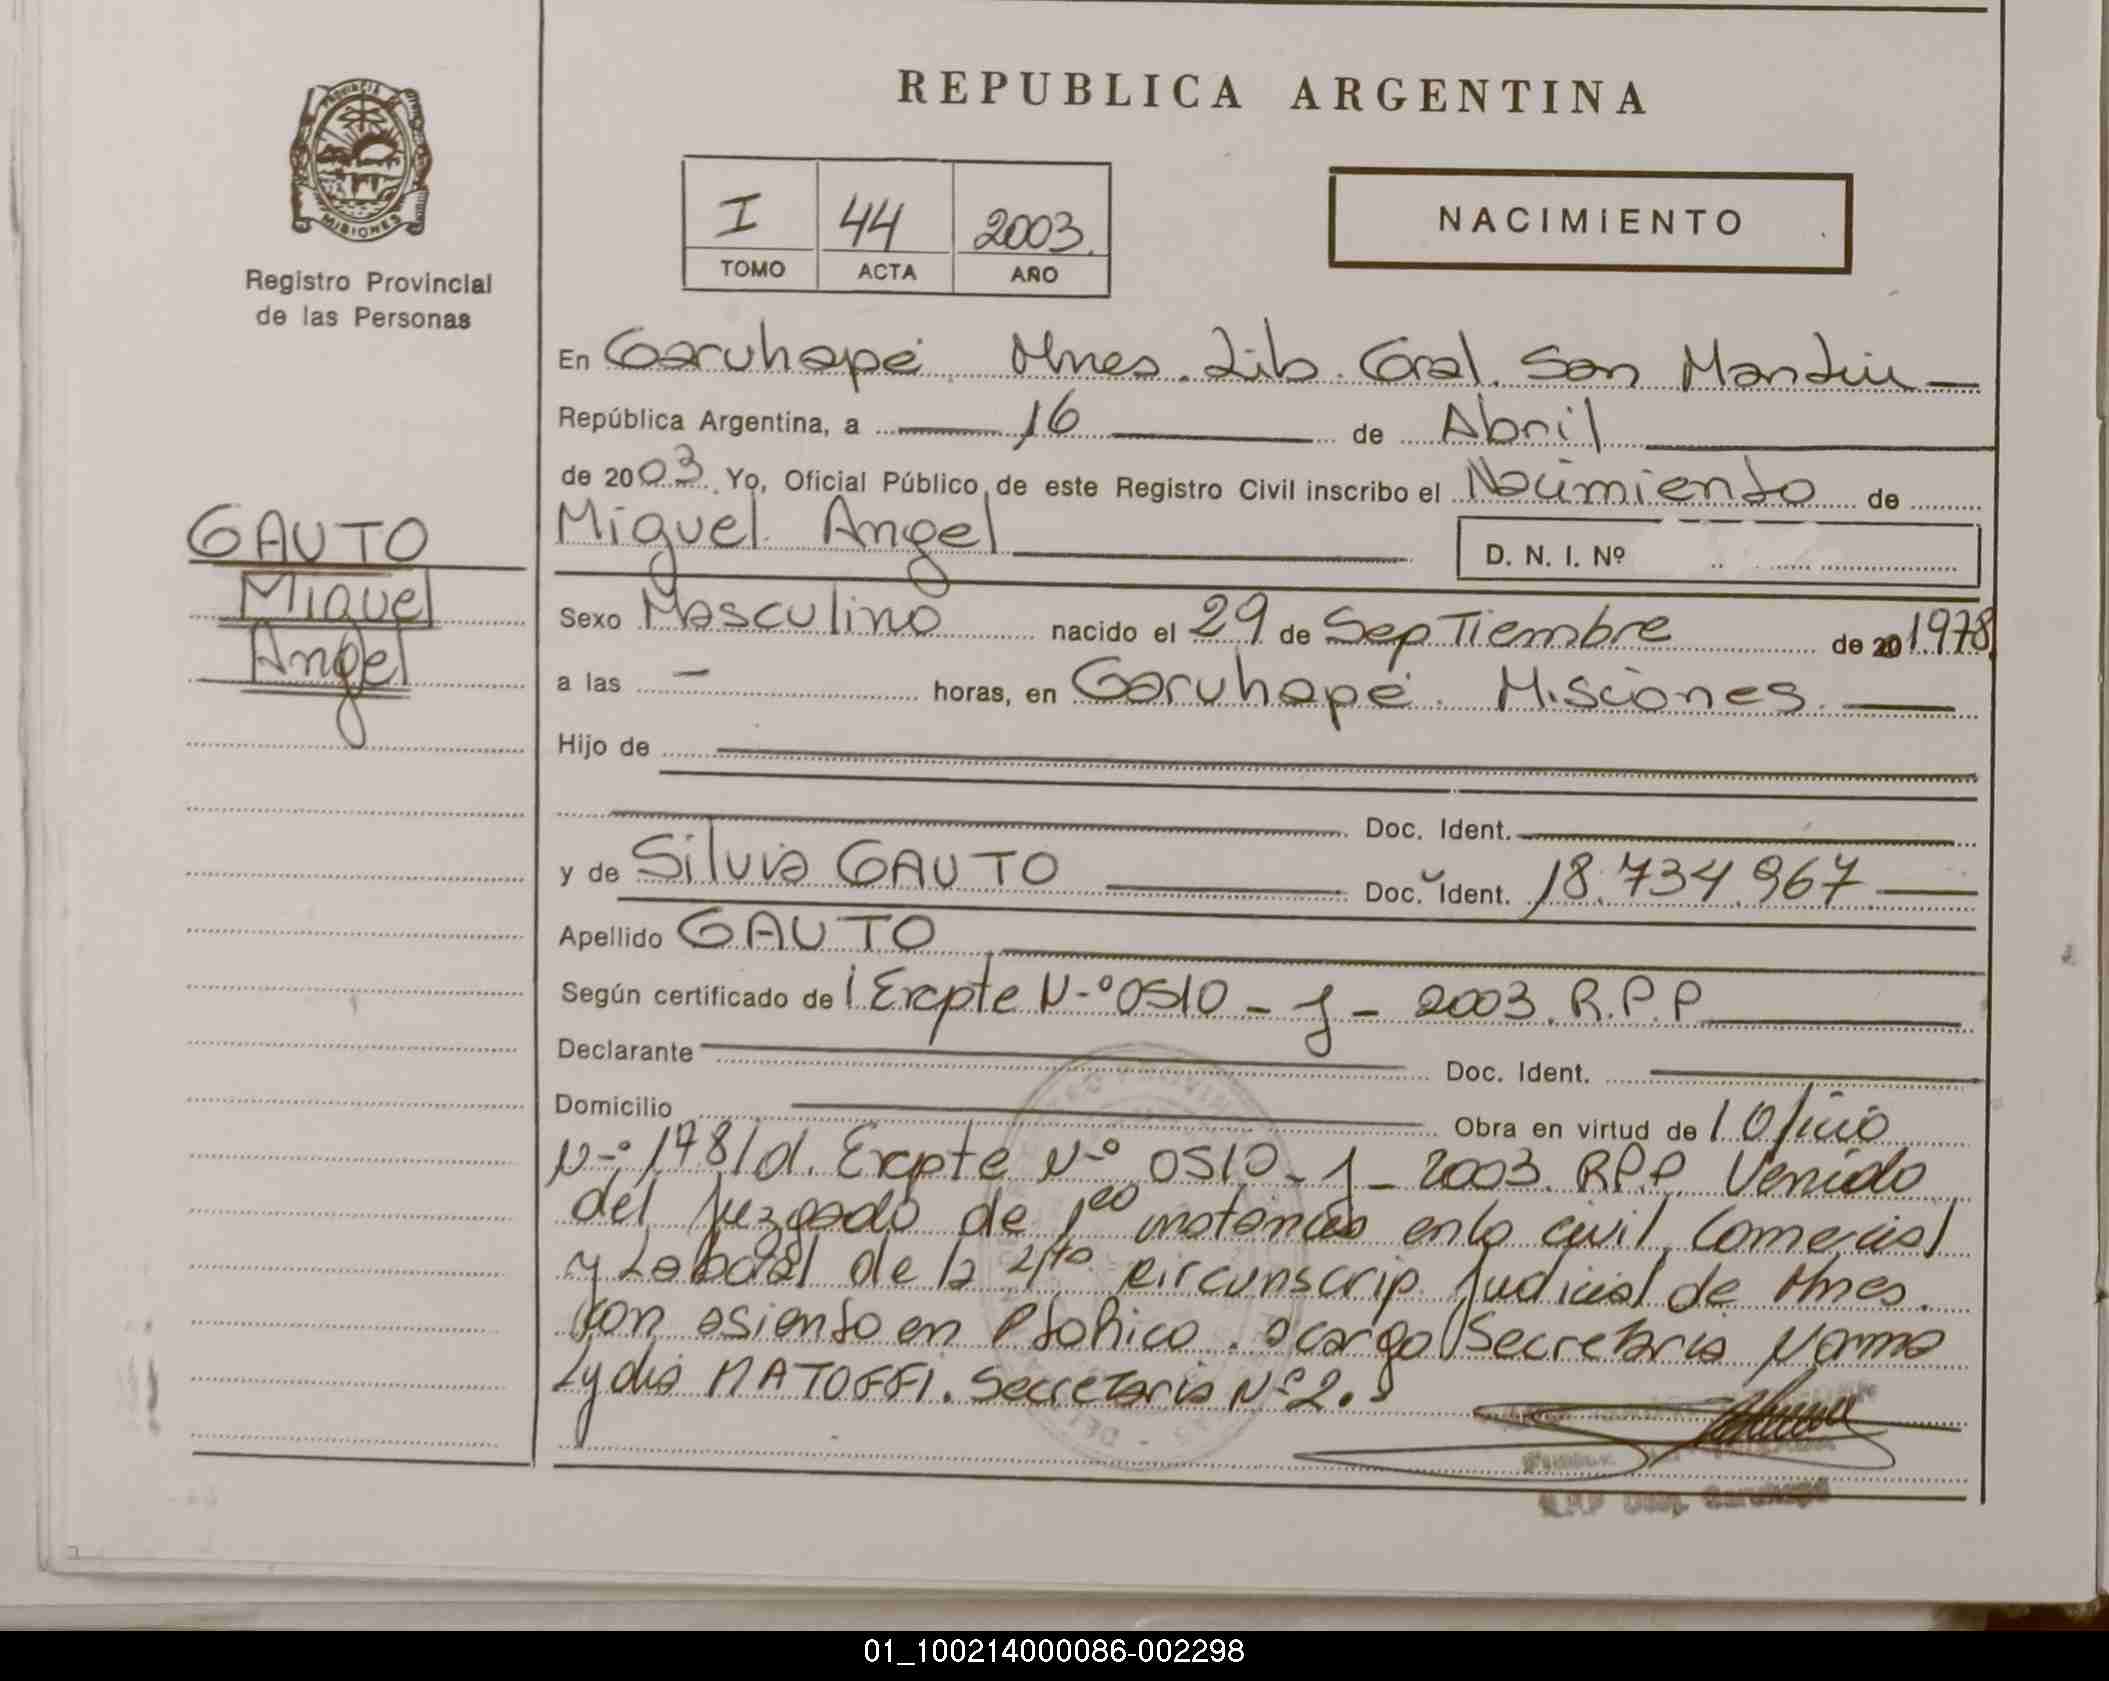 REPUBLICA ARGENTINA
PROVINCIA DE
MISIONES
Registro Provincial
de las Personas
I 44 2003.
TOMO ACTA AÑO
NACIMIENTO
En Garuhapé Mnes. Lib. Gral. San Martín
República Argentina, a 16 de Abril
de 2003. Yo, Oficial Público de este Registro Civil inscribo el Nacimiento de
Miguel Angel
D. N. I. Nº
GAUTO
Miguel
Angel
Sexo Masculino nacido el 29 de Septiembre de 20 1978
a las - horas, en Garuhapé. Misiones.
Hijo de
Doc. Ident.
y de Silvia GAUTO Doc. Ident. 18.734.967
Apellido GAUTO
Según certificado de Expte N-º 0510 - J - 2003. R.P.P
Declarante Doc. Ident.
Domicilio Obra en virtud de Oficio
N-º 178/d. Expte N-º 0510 - J - 2003. R.P.P. Venido
del Juzgado de instancia en lo civil, Comercial
y Laboral de la circunscrip. Judicial de Mnes.
con asiento en Pto Rico. a cargo Secretaria Norma
Lydia MATOFFI. Secretaria Nº 2.
R.P.P. Garuhapé
01_100214000086-002298